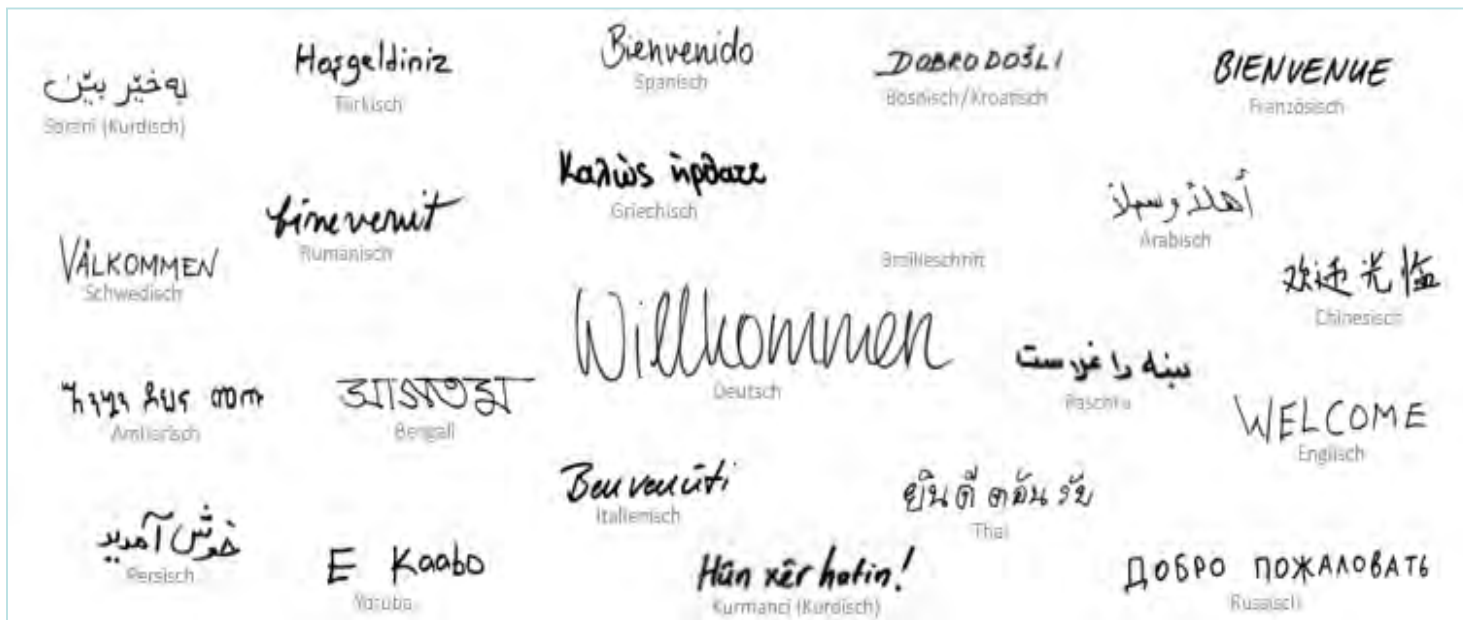 بەخێر بێن
Sorani (Kurdisch)
Hoşgeldiniz
Türkisch
Bienvenido
Spanisch
DOBRODOŠLI
Bosnisch/Kroatisch
BIENVENUE
Französisch
Καλώς ήρθατε
Griechisch
أهلاً وسهلاً
Arabisch
bine venit
Rumänisch
VÄLKOMMEN
Schwedisch
Brailleschrift
欢迎光临
Chinesisch
Willkommen
Deutsch
Paschtu
Amharisch
Bengali
WELCOME
Englisch
Benvenuti
Italienisch
Thai
خوش آمدید
Persisch
E Kaabo
Yoruba
Hûn xêr hatin!
Kurmanci (Kurdisch)
ДОБРО ПОЖАЛОВАТЬ
Russisch